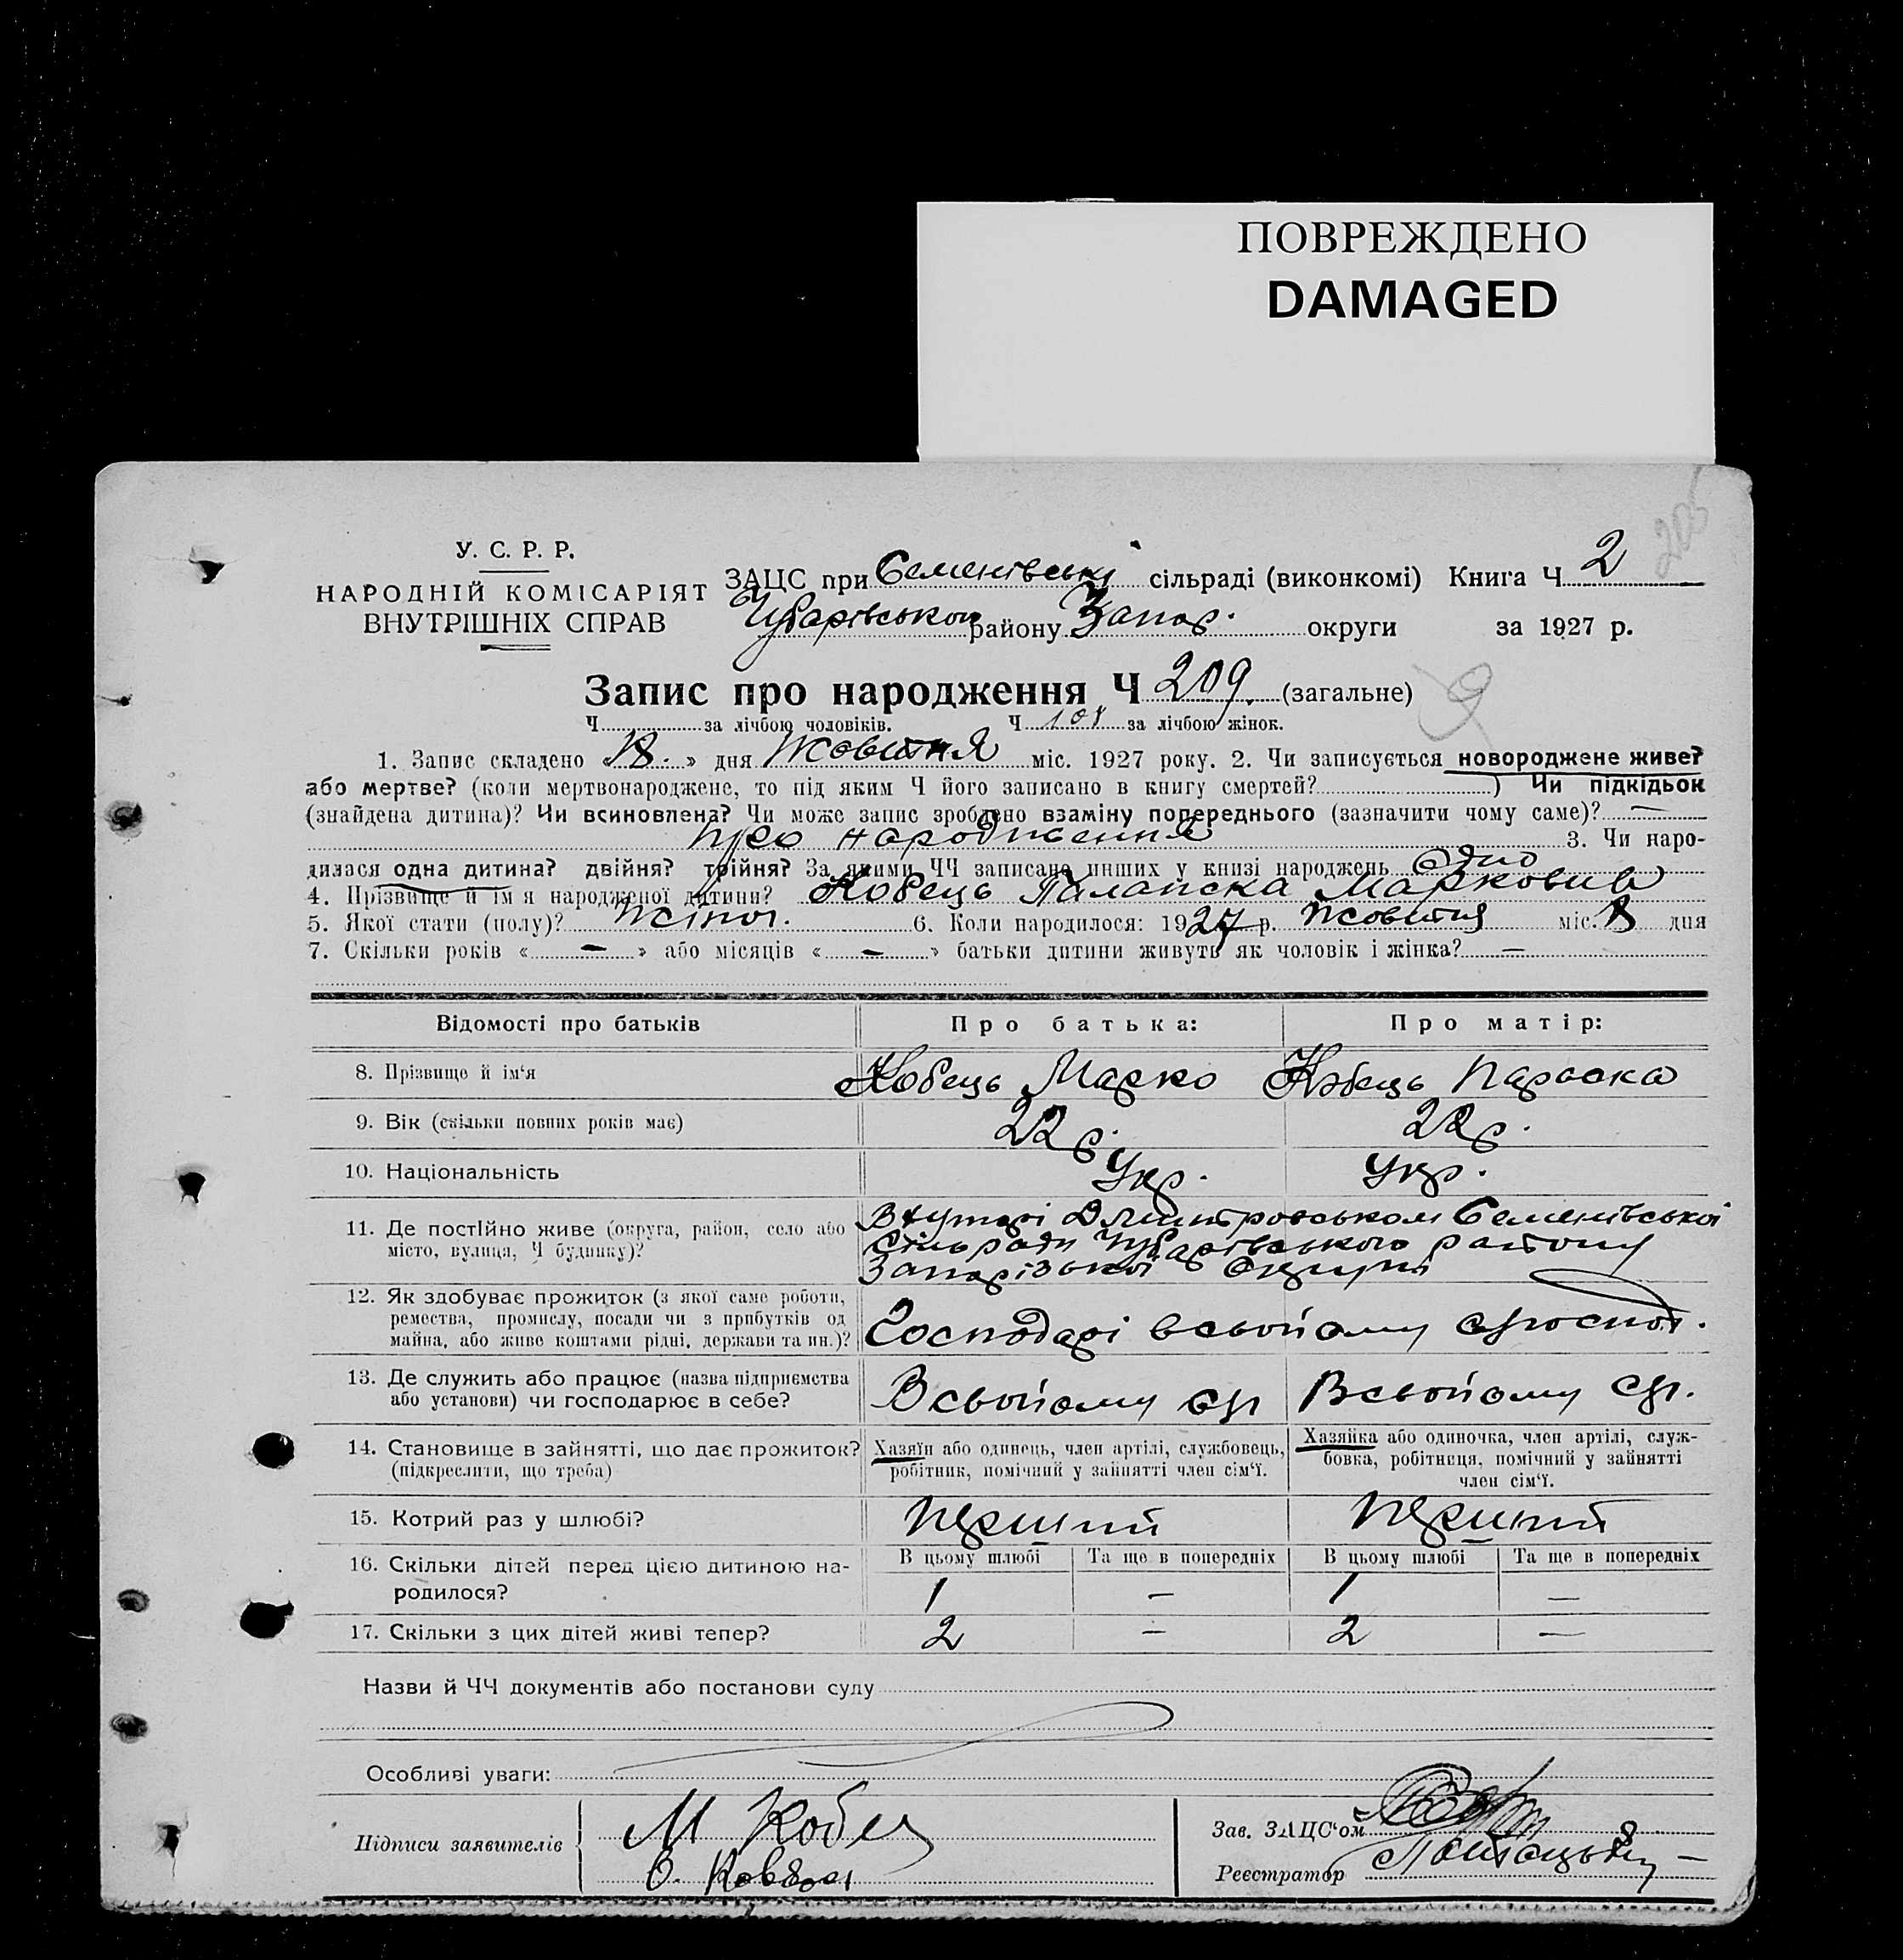 ПОВРЕЖДЕНО
DAMAGED
205
У. С. Р. Р.
НАРОДНІЙ КОМІСАРІЯТ
ВНУТРІШНІХ СПРАВ
ЗАЦС при Семенівські сільраді (виконкомі) Книга Ч 2
Чубарівського району Запор. округи за 1927 р.
Запис про народження Ч 209. (загальне)
Ч за лічбою чоловіків. Ч 108 за лічбою жінок.
1. Запис складено « 18. » дня Жовтня міс. 1927 року. 2. Чи записується новороджене живе?
або мертве? (коли мертвонароджене, то під яким Ч його записано в книгу смертей? ) Чи підкідьок
(знайдена дитина)? Чи всиновлена? Чи може запис зроблено взаміну попереднього (зазначити чому саме)? —
про народження 3. Чи наро-
дилася одна дитина? двійня? трійня? За якими ЧЧ записано инших у книзі народжень одно
4. Прізвище й ім'я народженої дитини? Кобець Палапска Марковна
5. Якої стати (полу)? Жіноч. 6. Коли народилося: 1927 р. Жовтня міс. 8 дня
7. Скільки років « — » або місяців « — » батьки дитини живуть як чоловік і жінка? —
Відомості про батьків Про батька: Про матір:
8. Прізвище й ім'я Кобець Марко Кобець Параска
9. Вік (скільки повних років має) 22 р. 22 р.
10. Національність Укр. Укр.
11. Де постійно живе (округа, район, село або місто, вулиця, Ч будинку)?
В хуторі Дмитровськом Семенівської
Сільради Чубарівського району
Запорізької округи
12. Як здобуває прожиток (з якої саме роботи,
ремества, промислу, посади чи з прибутків од
майна, або живе коштами рідні, держави та ин.)? Господарі всвойому
13. Де служить або працює (назва підприємства
або установи) чи господарює в себе? Всвойому Всвойому
14. Становище в зайнятті, що дає прожиток?
(підкреслити, що треба)
Хазяїн або одинець, член артілі, службовець,
робітник, помічний у зайнятті член сім'ї.
Хазяйка або одиночка, член артілі, служ-
бовка, робітниця, помічний у зайнятті
член сім'ї.
15. Котрий раз у шлюбі? перший перший
16. Скільки дітей перед цією дитиною на-
родилося?
В цьому шлюбі Та ще в попередніх В цьому шлюбі Та ще в попередніх
1 — 1 —
17. Скільки з цих дітей живі тепер? 2 — 2 —
Назви й ЧЧ документів або постанови суду
Особливі уваги:
Підписи заявителів М Кобец
Зав. ЗАЦС'ом
Реєстратор